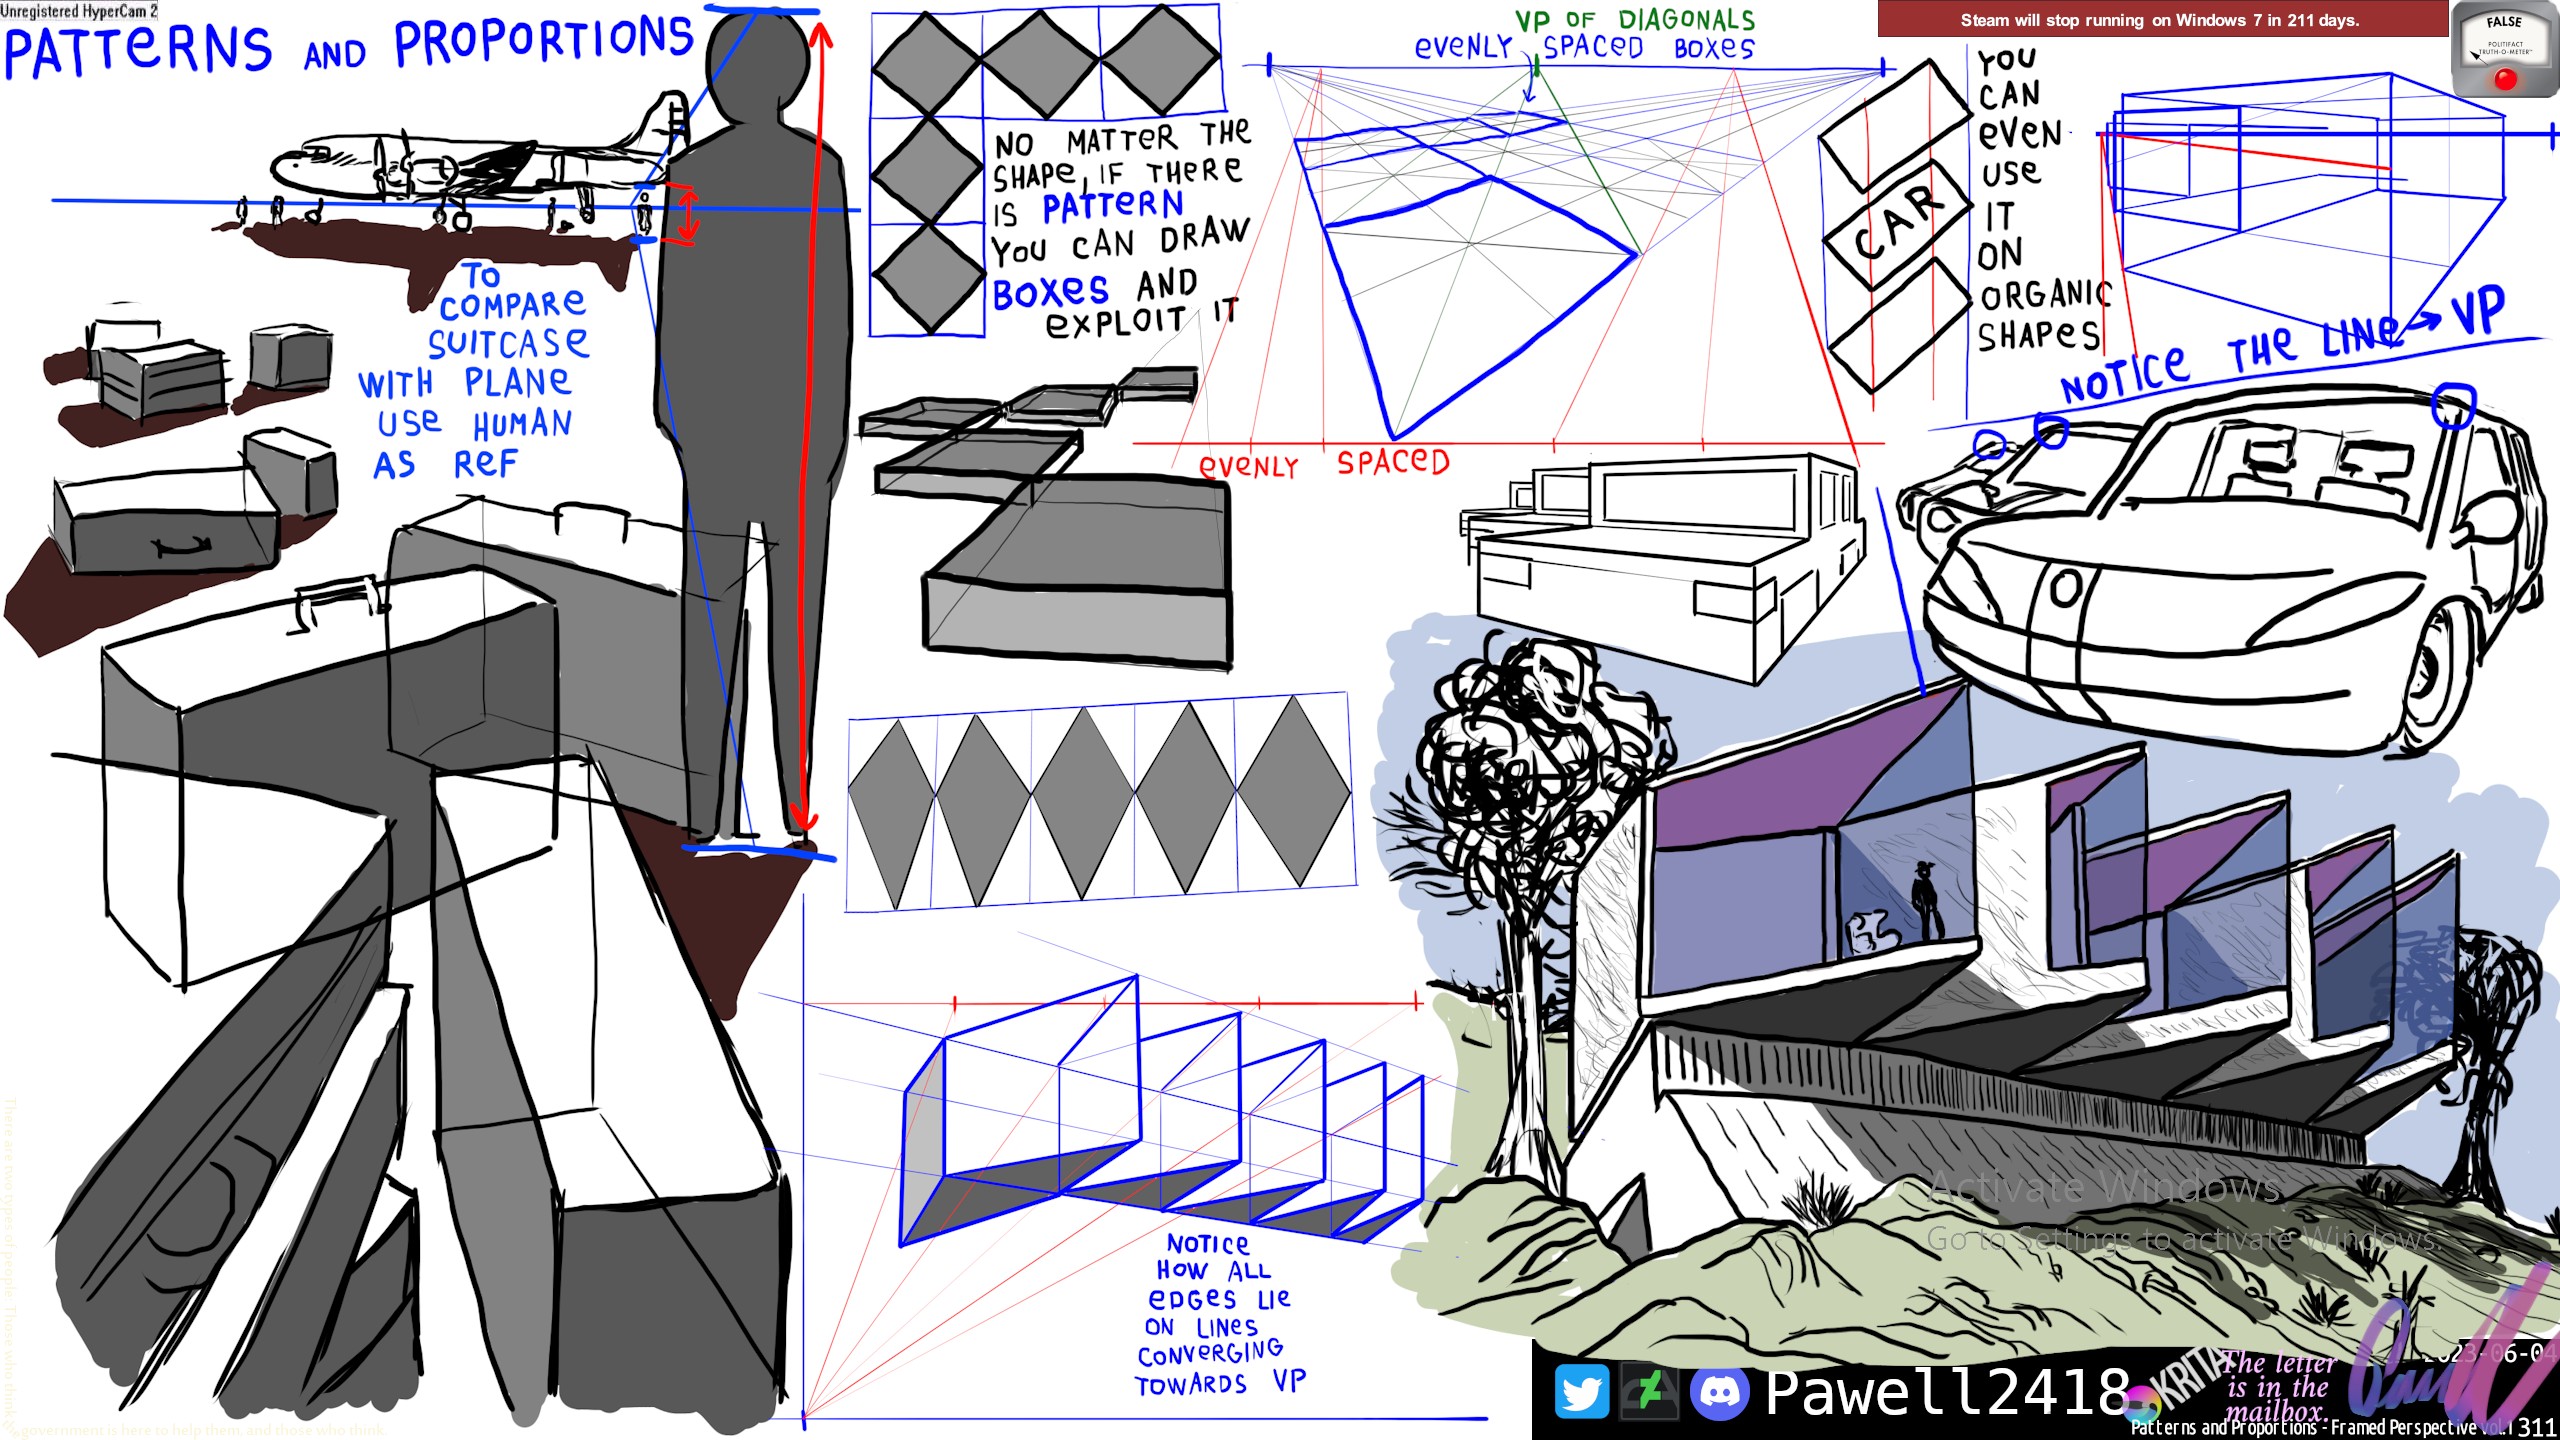 Unregistered HyperCam 2
PATTERNS AND PROPORTIONS
TO
COMPARE
SUITCASE
WITH PLANE
USE HUMAN
AS REF
NO MATTER THE
SHAPE, IF THERE
IS PATTERN
YOU CAN DRAW
BOXES AND
EXPLOIT IT
VP OF DIAGONALS
EVENLY SPACED BOXES
EVENLY SPACED
CAR
YOU
CAN
EVEN
USE
IT
ON
ORGANIC
SHAPES
Steam will stop running on Windows 7 in 211 days.
FALSE
POLITIFACT
TRUTH-O-METER™
NOTICE THE LINE → VP
NOTICE
HOW ALL
EDGES LIE
ON LINES
CONVERGING
TOWARDS VP
Activate Windows
Go to Settings to activate Windows.
There are two types of people: Those who think
government is here to help them, and those who think.
Pawell2418
KRITA
The letter
is in the
mailbox.
2023-06-04
Patterns and Proportions - Framed Perspective vol.1 311